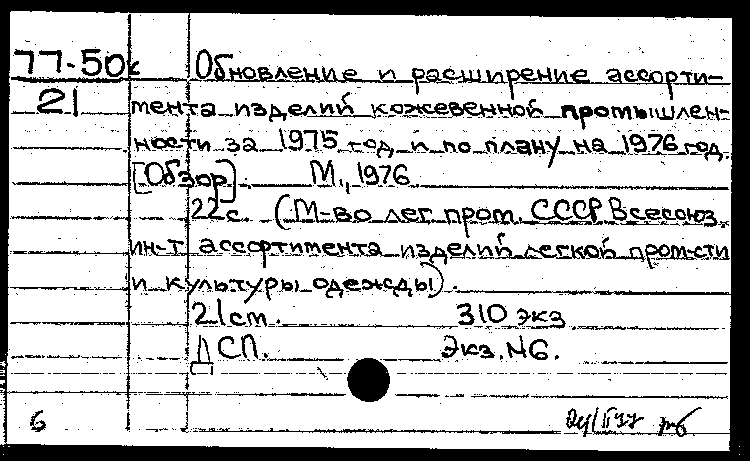 77-50к Обновление и расширение ассорти-
21 мента изделий кожевенной промышлен-
ности за 1975 год и по плану на 1976 год.
[Обзор]. М., 1976
22 с. (М-во лег. пром. СССР. Всесоюз.
ин-т ассортимента изделий легкой пром-сти
и культуры одежды).
21 cm. 310 экз
ДСП. Экз. №6.
6